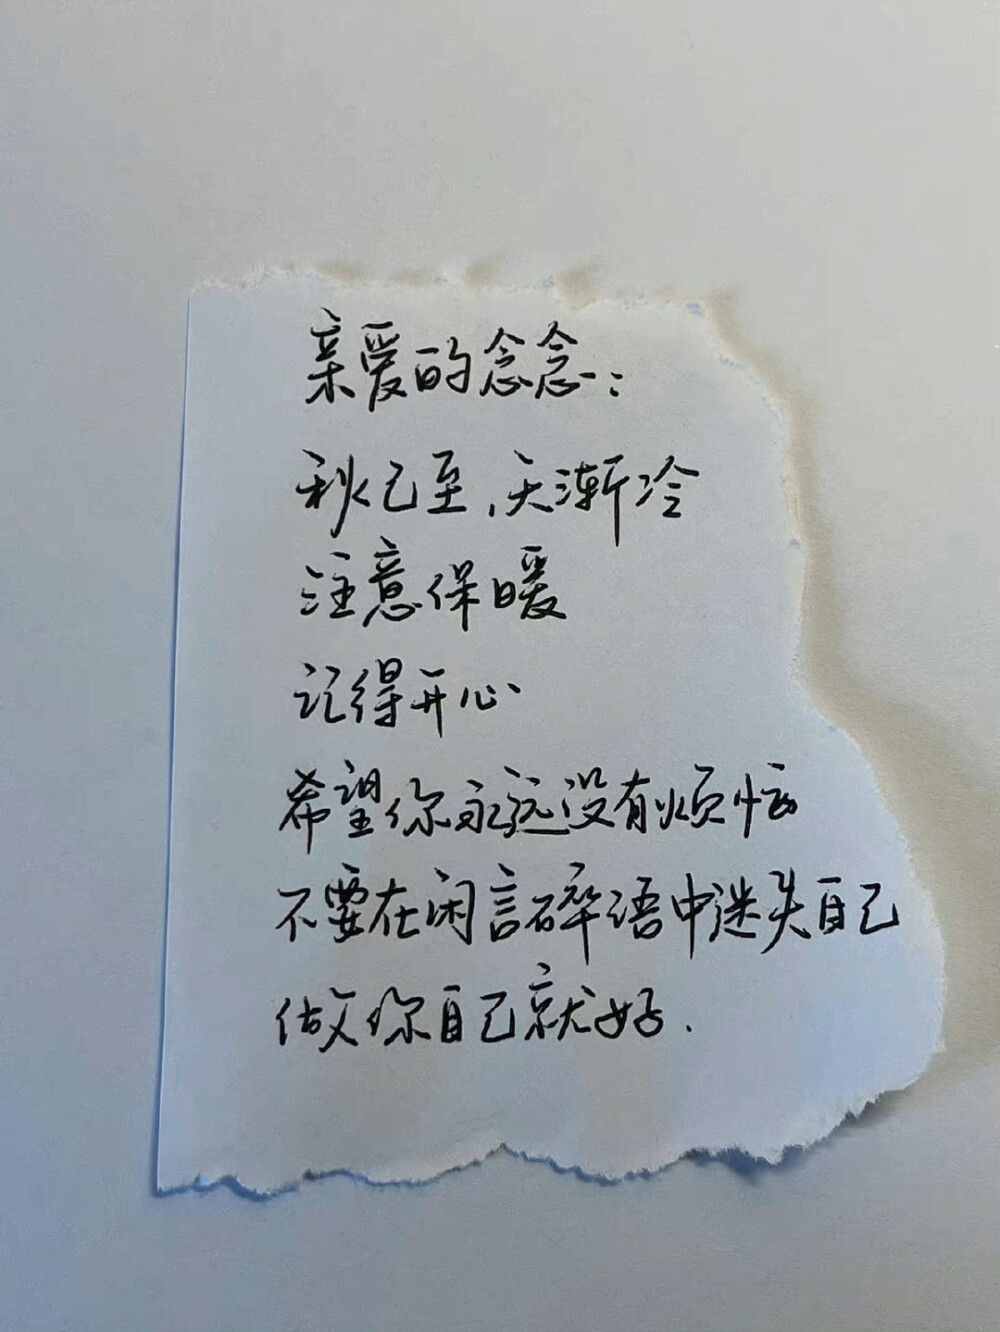 亲爱的念念：
秋已至，天渐冷
注意保暖
记得开心
希望你永远没有烦恼
不要在闲言碎语中迷失自己
做你自己就好.